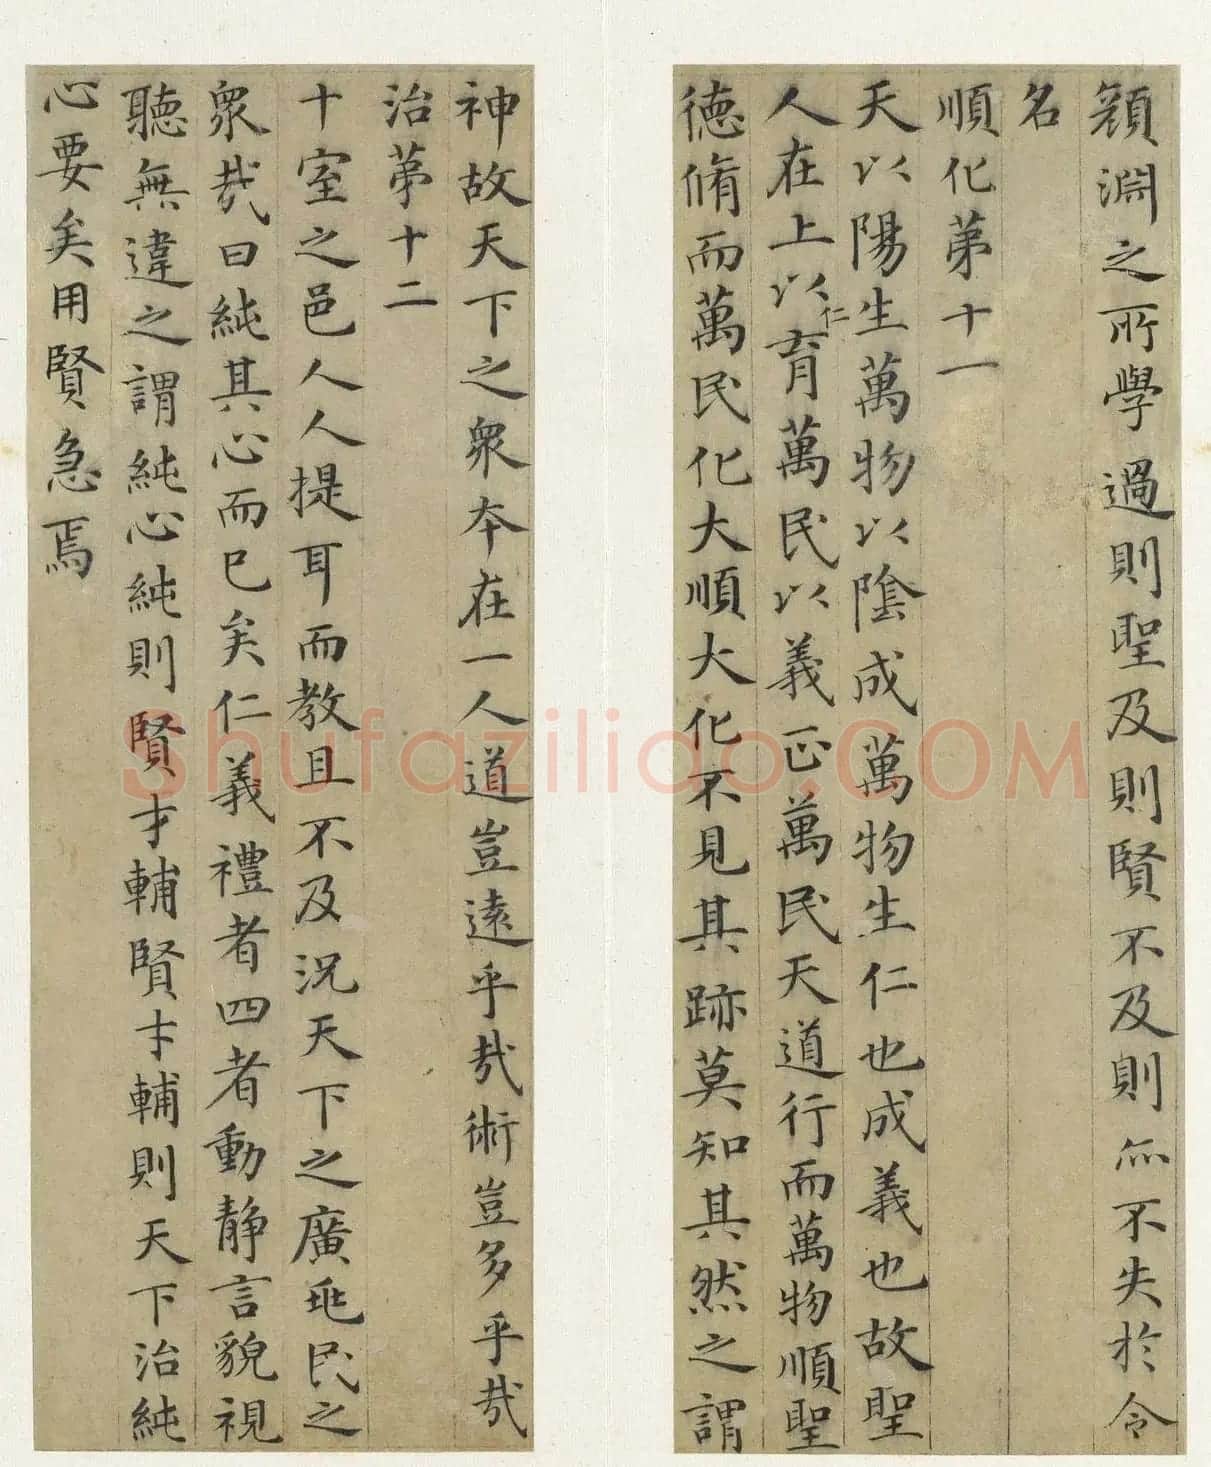 顔淵之所學過則聖及則賢不及則亦不失於令
名
順化苐十一
天以陽生萬物以陰成萬物生仁也成義也故聖
人在上以仁育萬民以義正萬民天道行而萬物順聖
德脩而萬民化大順大化不見其跡莫知其然之謂
神故天下之衆本在一人道豈遠乎哉術豈多乎哉
治苐十二
十室之邑人人提耳而教且不及況天下之廣兆民之
衆哉曰純其心而已矣仁義禮者四者動静言貌視
聽無違之謂純心純則賢才輔賢才輔則天下治純
心要矣用賢急焉
Shufaziliao.COM